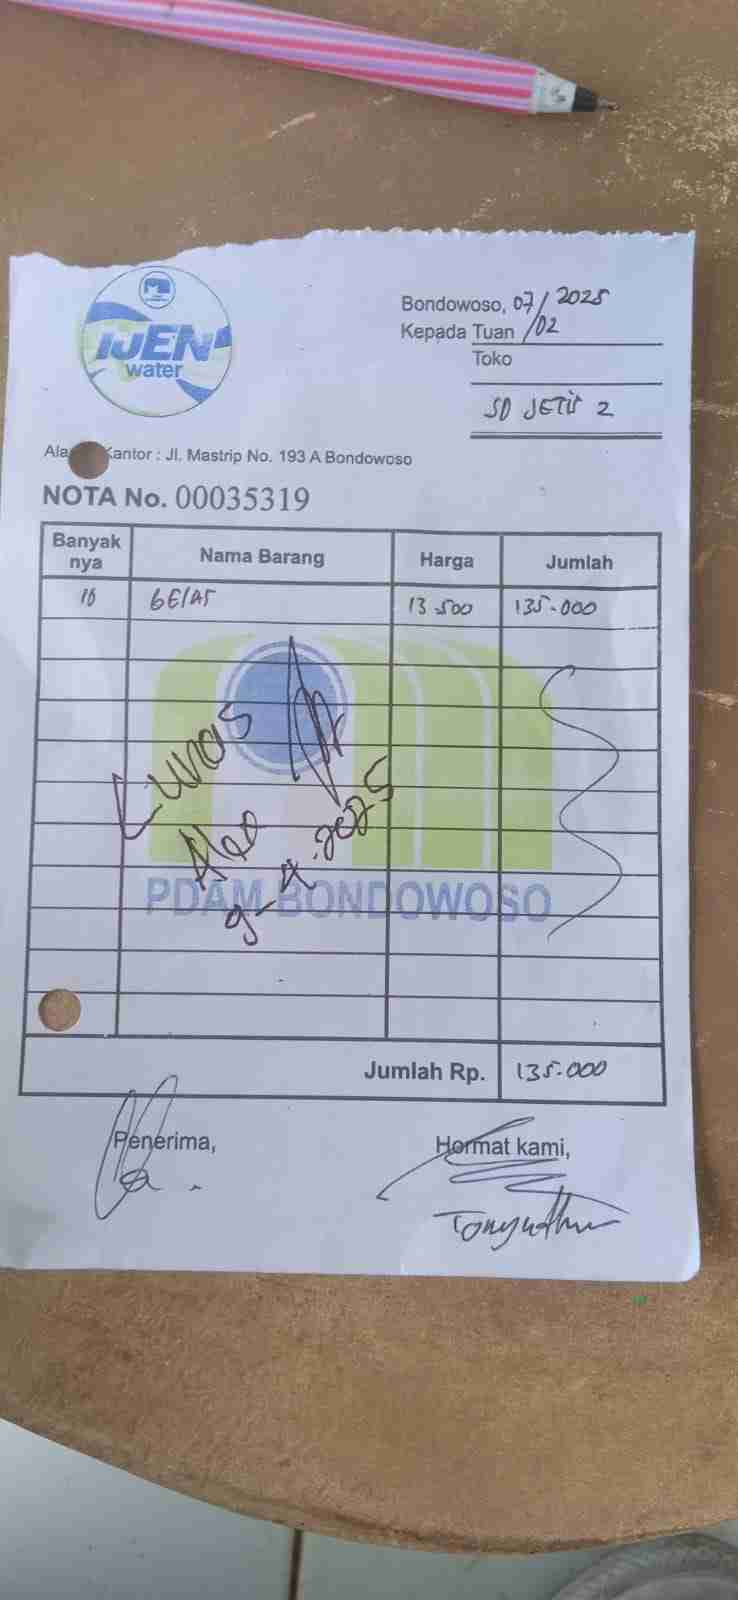 IJEN
water
Bondowoso, 07/02 2025
Kepada Tuan
Toko
SD JETIS 2
Kantor : Jl. Mastrip No. 193 A Bondowoso
NOTA No. 00035319
Banyak nya Nama Barang Harga Jumlah
10 GElAS 13.500 135.000
Lunas
9-4-2025
PDAM BONDOWOSO
Jumlah Rp. 135.000
Penerima, Hormat kami,